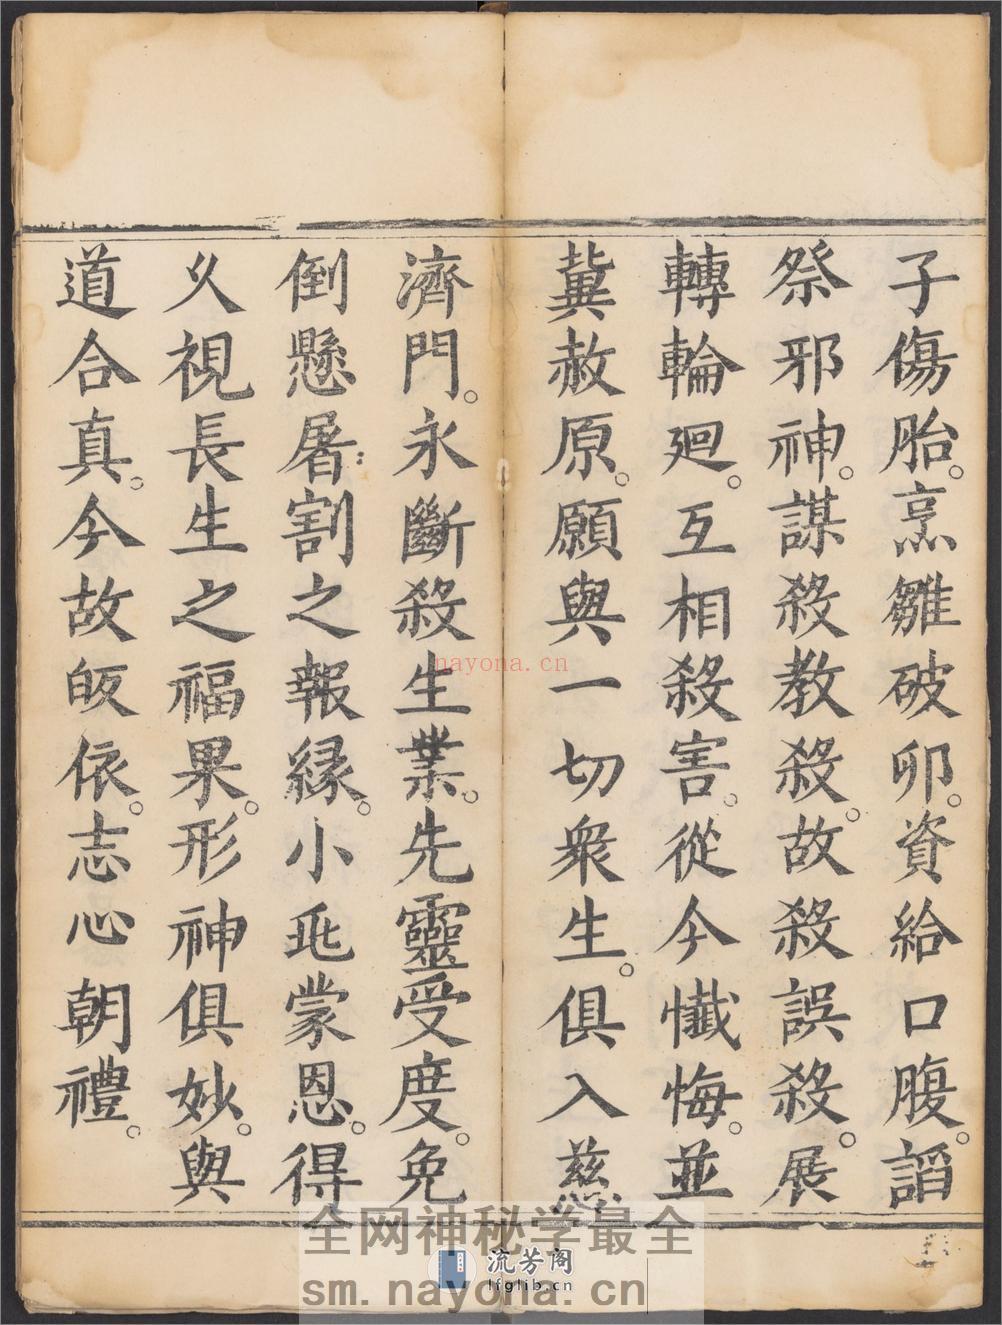 子傷胎。烹雛破卵。資給口腹。謟
祭邪神。謀殺教殺。故殺誤殺。展
轉輪廻。互相殺害。從今懺悔。並
冀赦原。願與一切眾生。俱入慈
濟門。永斷殺生業。先靈受度。免
倒懸屠割之報緣。小丠蒙恩。得
乆視長生之福果。形神俱妙。與
道合真。今故皈依。志心朝禮。
nayona.cn
全网神秘学最全
流芳阁
lfglib.cn
sm.nayona.cn